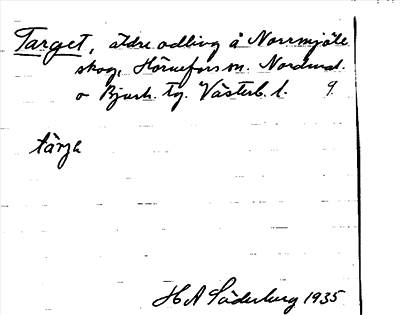 Target, äldre odling å Norrmjöle
skog, Hörnefors sn. Nordmal.
o Bjurh. tg. Västerb. l. 9.
tärja
H A Söderberg 1935